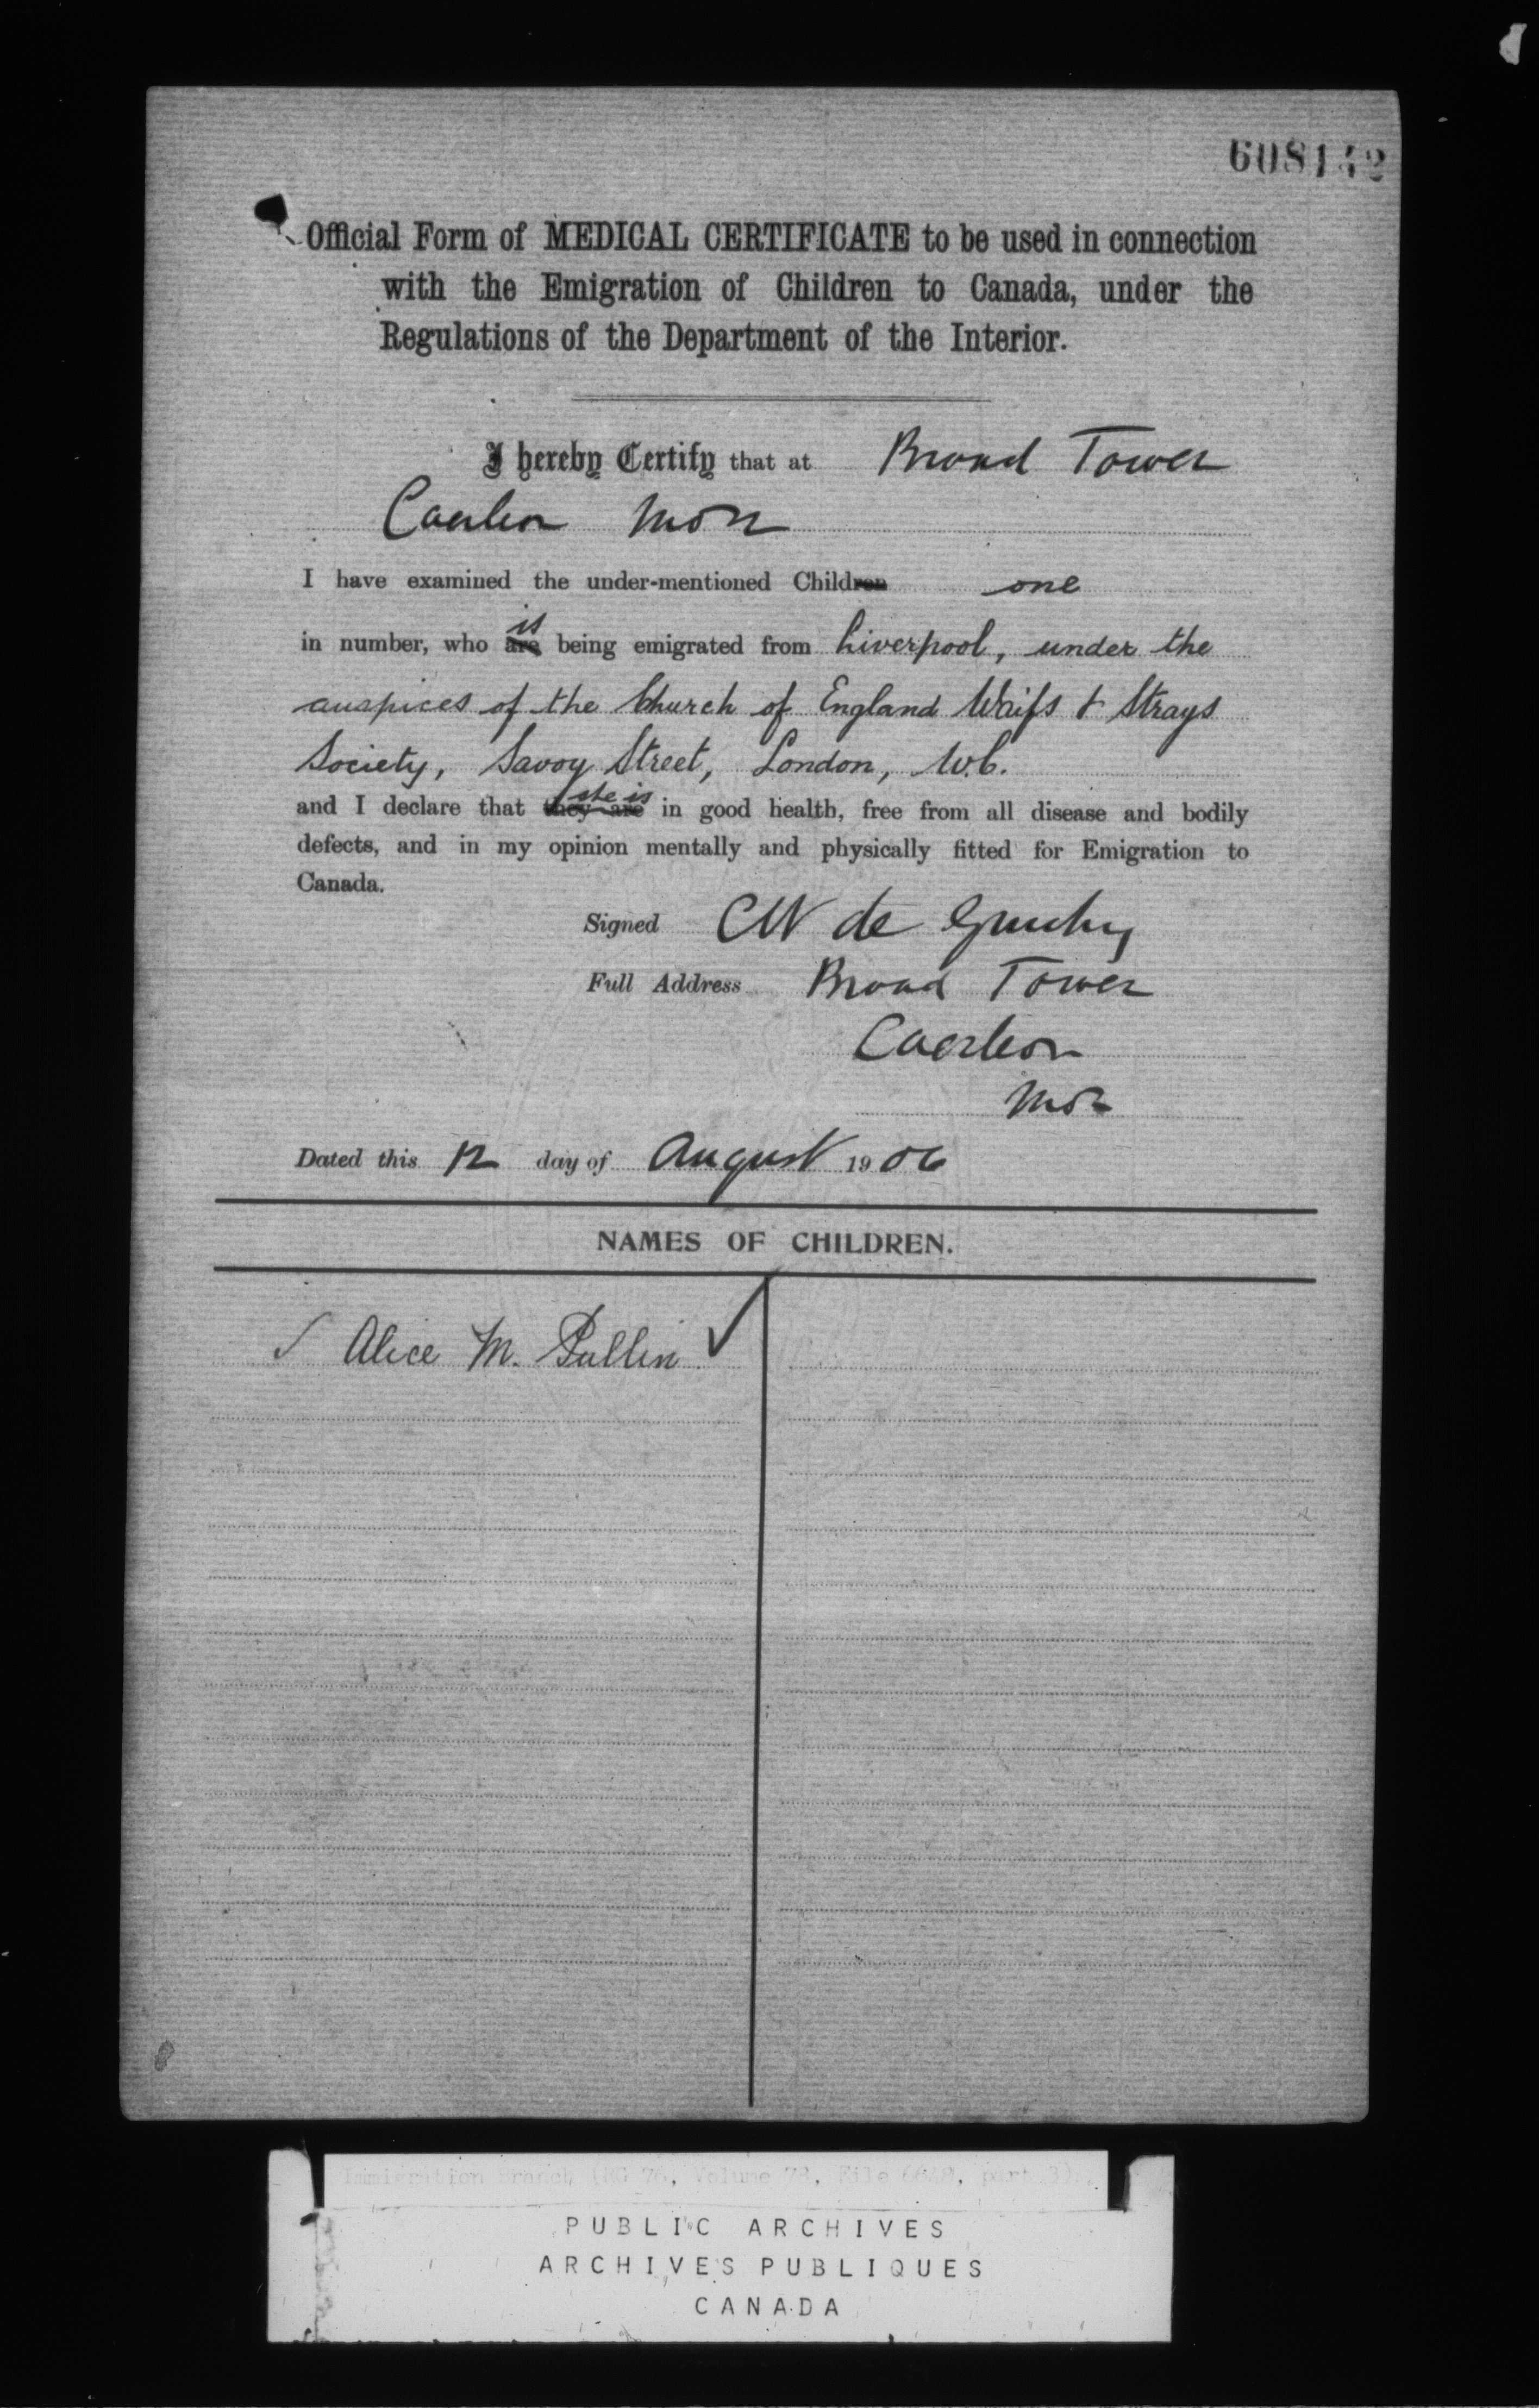 608142
Official Form of MEDICAL CERTIFICATE to be used in connection
with the Emigration of Children to Canada, under the
Regulations of the Department of the Interior.
I hereby Certify that at Broad Tower
Caerleon Mon
I have examined the under-mentioned Children one
in number, who are is being emigrated from Liverpool, under the
auspices of the Church of England Waifs & Strays
Society, Savoy Street, London, W.C.
and I declare that they are she is in good health, free from all disease and bodily
defects, and in my opinion mentally and physically fitted for Emigration to
Canada.
Signed CW de Gruchy
Full Address Broad Tower
Caerleon
Mon
Dated this 12 day of August 1906
NAMES OF CHILDREN.
Alice M. Pullin
Immigration Branch (RG 76, Volume 78, File 6648, part 3)
PUBLIC ARCHIVES
ARCHIVES PUBLIQUES
CANADA